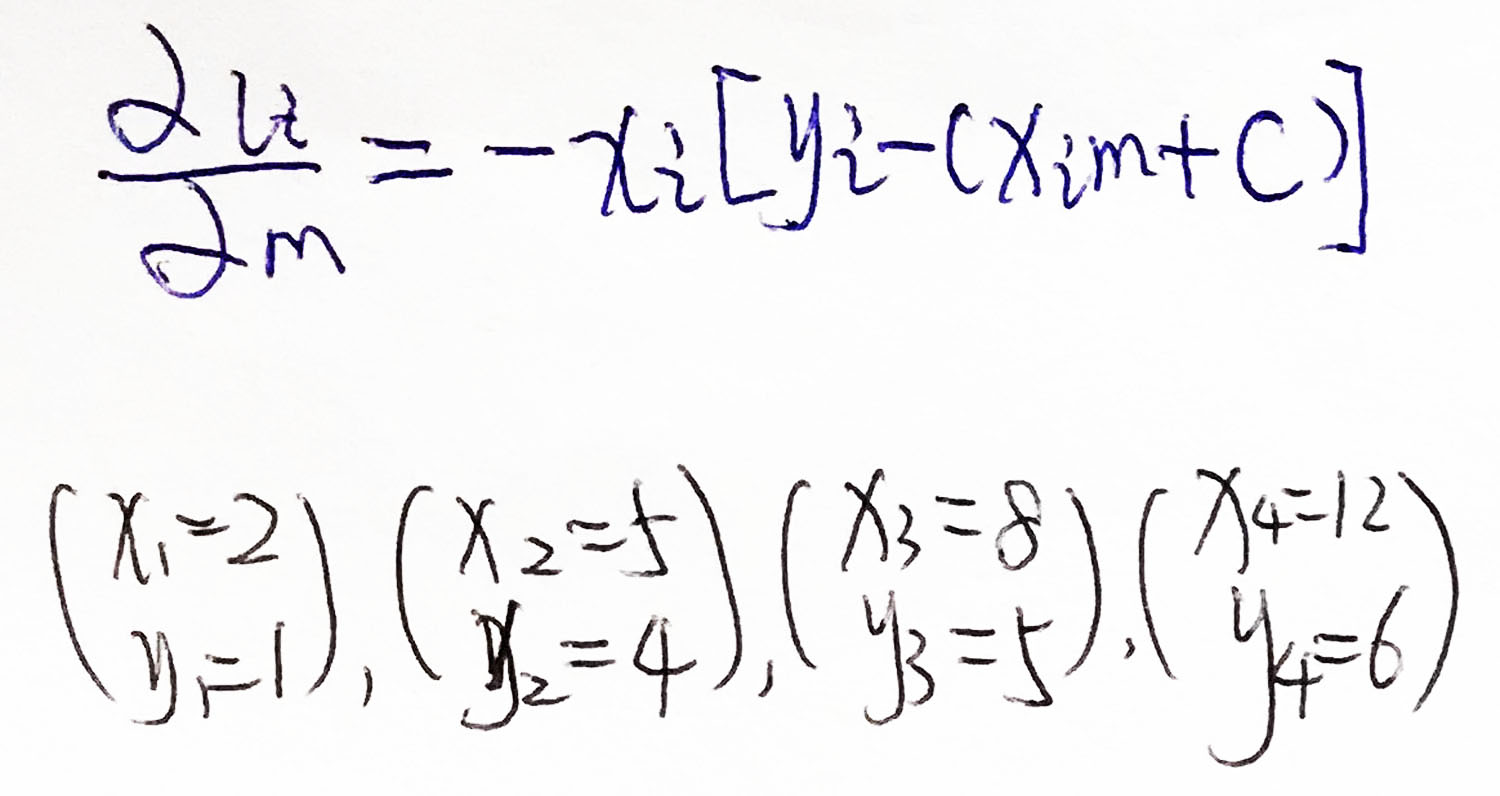 ∂u/∂m = -xᵢ[yᵢ-(xᵢm+c)]
(x₁=2 y₁=1), (x₂=5 y₂=4), (x₃=8 y₃=5), (x₄=12 y₄=6)